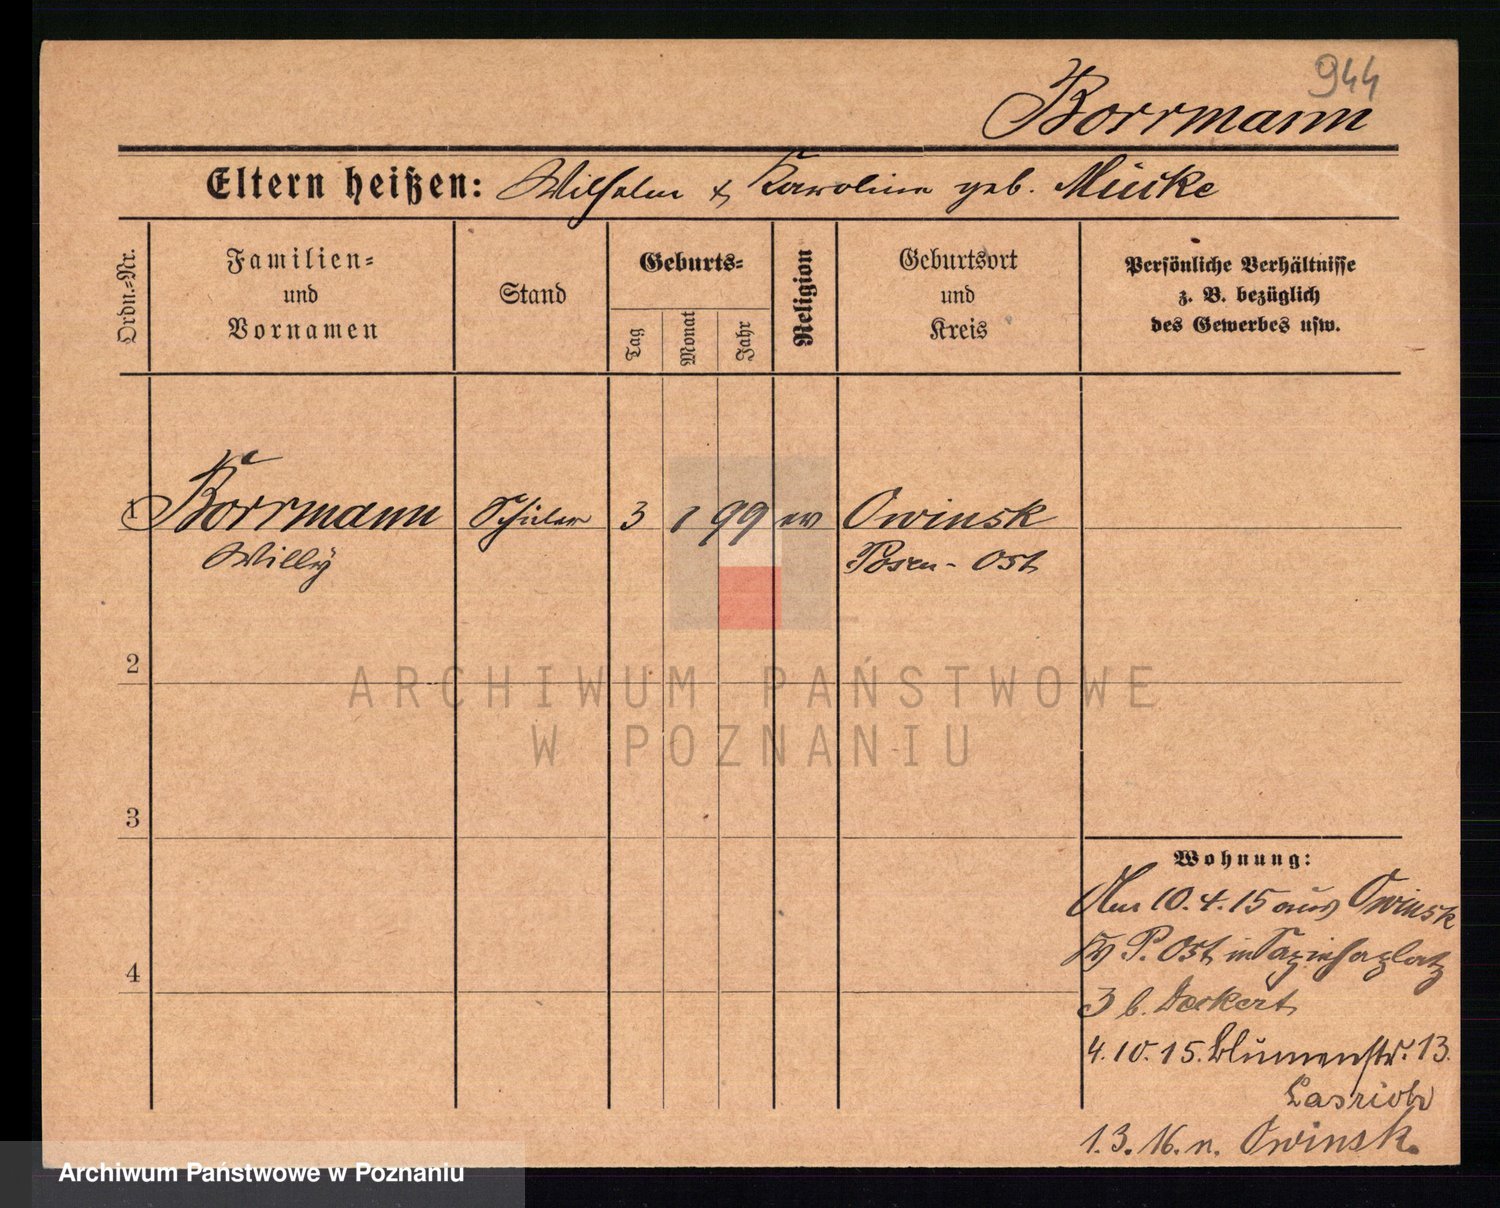 944
Borrmann
Eltern heißen: Wilhelm & Karoline geb. Mücke
Ordn.-Nr.
Familien-
und
Vornamen
Stand
Geburts-
Tag
Monat
Jahr
Religion
Geburtsort
und
Kreis
Persönliche Verhältnisse
z. B. bezüglich
des Gewerbes usw.
1 Borrmann Schüler 3 1 99 ev Owinsk
Willy Posen-Ost
2
3
4
Wohnung:
Am 10.4.15 aus Owinsk
Kr P. Ost in Sapiehaplatz
3 b. Deckert
4.10.15. Blumenstr. 13.
1.3.16. n. Owinsk.
ARCHIWUM PAŃSTWOWE
W POZNANIU
Archiwum Państwowe w Poznaniu